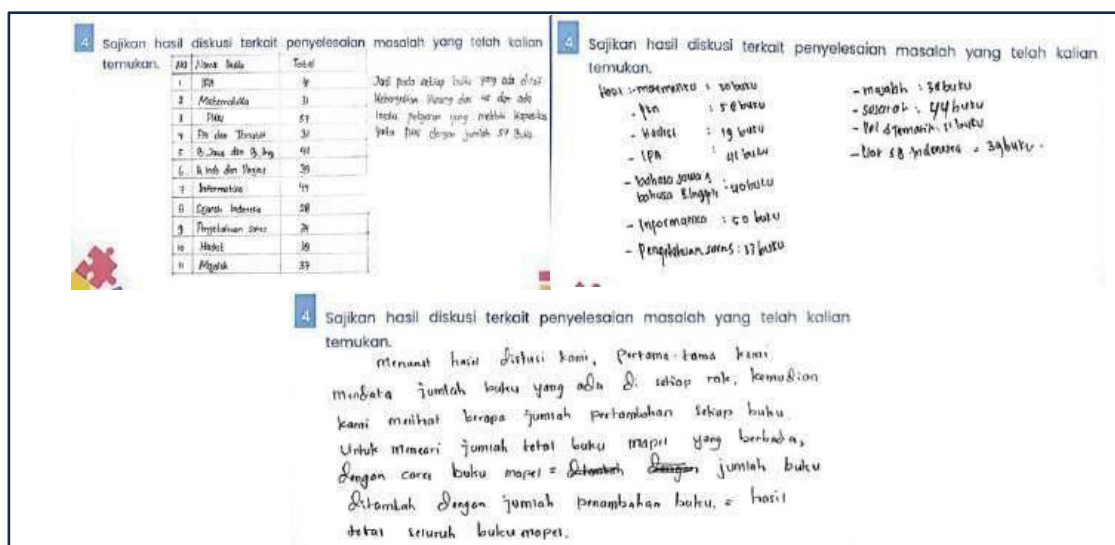 4 Sajikan hasil diskusi terkait penyelesaian masalah yang telah kalian
temukan.
No Nama Buku Total
1 IPA
2 Matematika 31
3 PKN 57
4 31
5 B. Jawa dan B. Ing 41
6 B. Indo dan 39
7 Informatika
8 Sejarah Indonesia 28
9 Pengetahuan Sains
10 Hadist 19
11 Majalah 37
Jadi pada setiap buku yang ada di rak
kurang dari 45 dan ada
pelajaran yang melebihi kapasitas
yaitu PKN dengan jumlah 57 Buku.
4 Sajikan hasil diskusi terkait penyelesaian masalah yang telah kalian
temukan.
: 30 buku
- PKn : 58 buku
- Hadist : 19 buku
- IPA : 41 buku
- bahasa Jawa &
bahasa : 40 buku
- Informatika : 50 buku
- Pengetahuan sains : 33 buku
- majalah : 38 buku
- sejarah : 44 buku
- 11 buku
- Indonesia = 39 buku.
4 Sajikan hasil diskusi terkait penyelesaian masalah yang telah kalian
temukan.
Menurut hasil diskusi kami, pertama-tama kami
mendata jumlah buku yang ada di setiap rak, kemudian
kami melihat berapa jumlah pertambahan setiap buku.
Untuk mencari jumlah total buku mapel yang berbeda,
dengan cara buku mapel = jumlah buku
ditambah dengan jumlah penambahan buku. = hasil
total seluruh buku mapel.